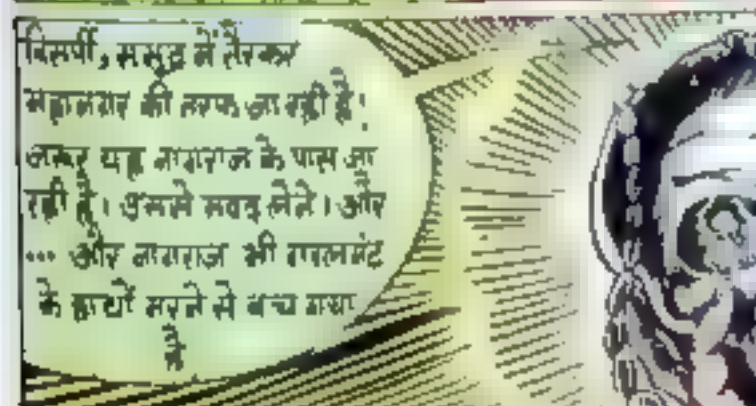 विसर्पी, समुद्र में तैरकर
महानगर की तरफ आ रही है!
जरूर यह नागराज के पास जा
रही है। उससे मदद लेने। और
... और नागराज भी गरलगंट
के हाथों मरने से बच गया
है